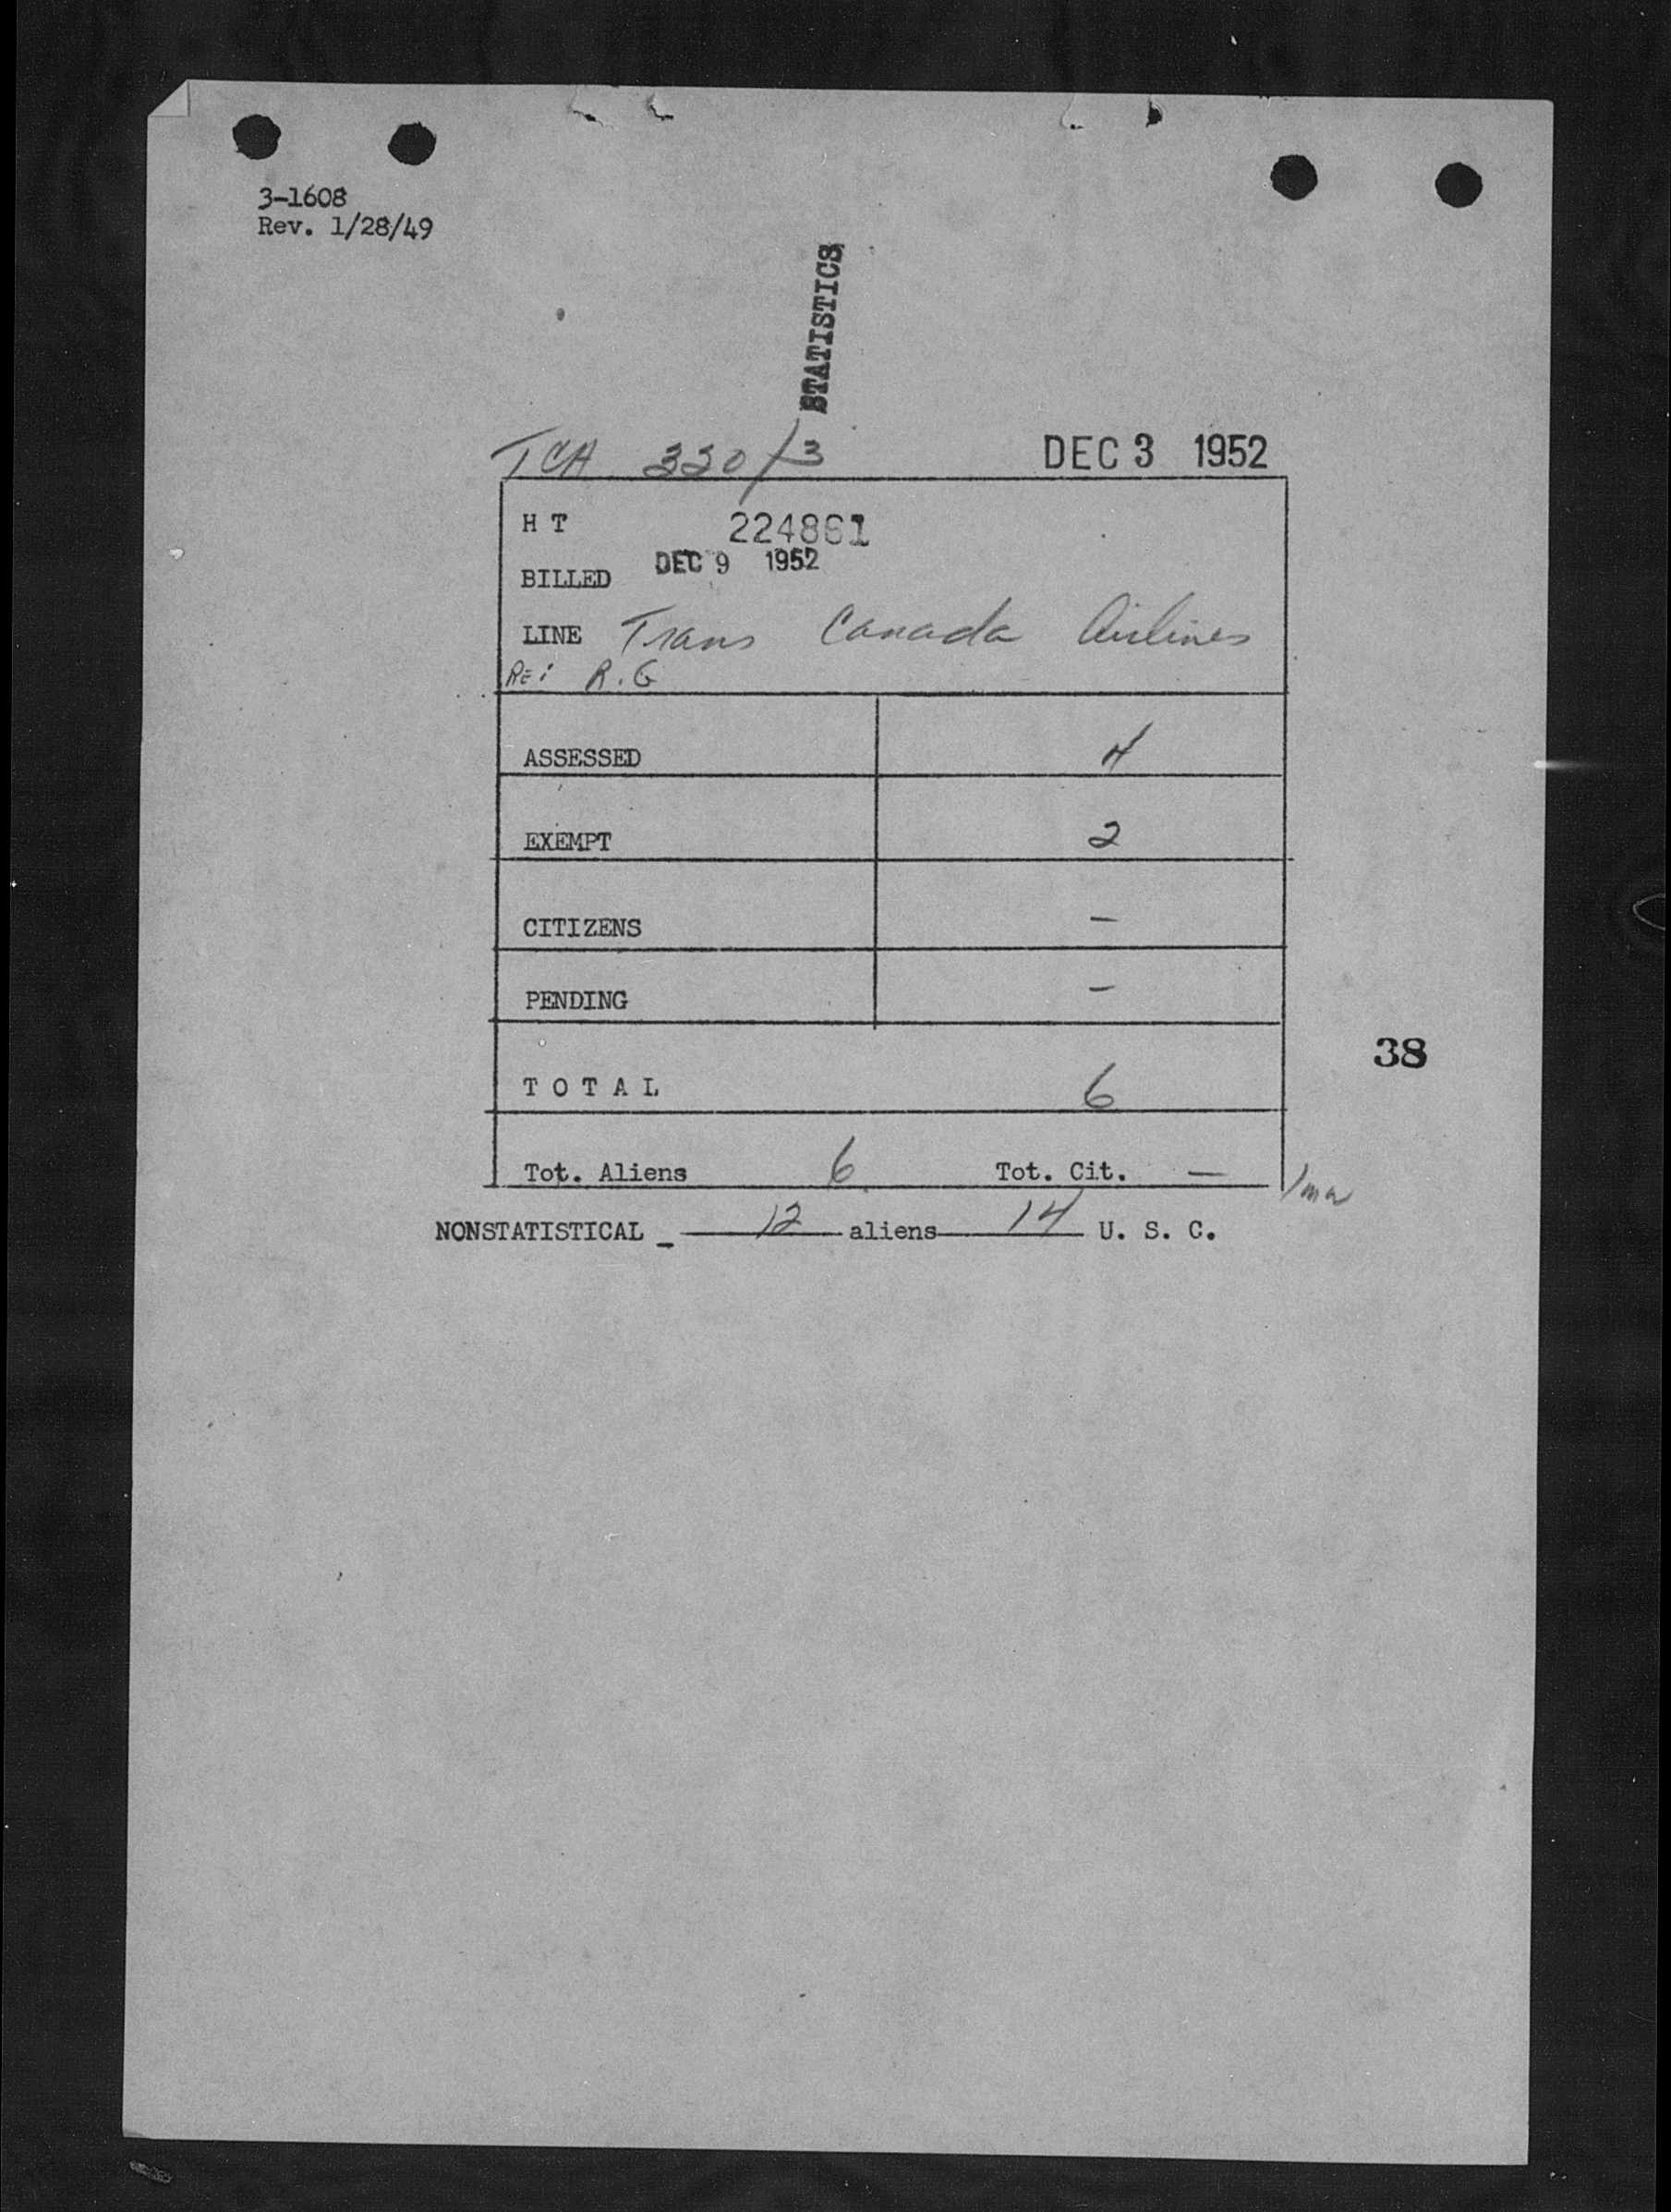 3-1608
Rev. 1/28/49
STATISTICS
TCA 330/3 DEC 3 1952
H T 224861
BILLED DEC 9 1952
LINE Trans Canada Airlines
RE: R.G
ASSESSED 4
EXEMPT 2
CITIZENS –
PENDING –
38
T O T A L 6
Tot. Aliens 6 Tot. Cit. —
NONSTATISTICAL - 12 aliens 14 U. S. C.